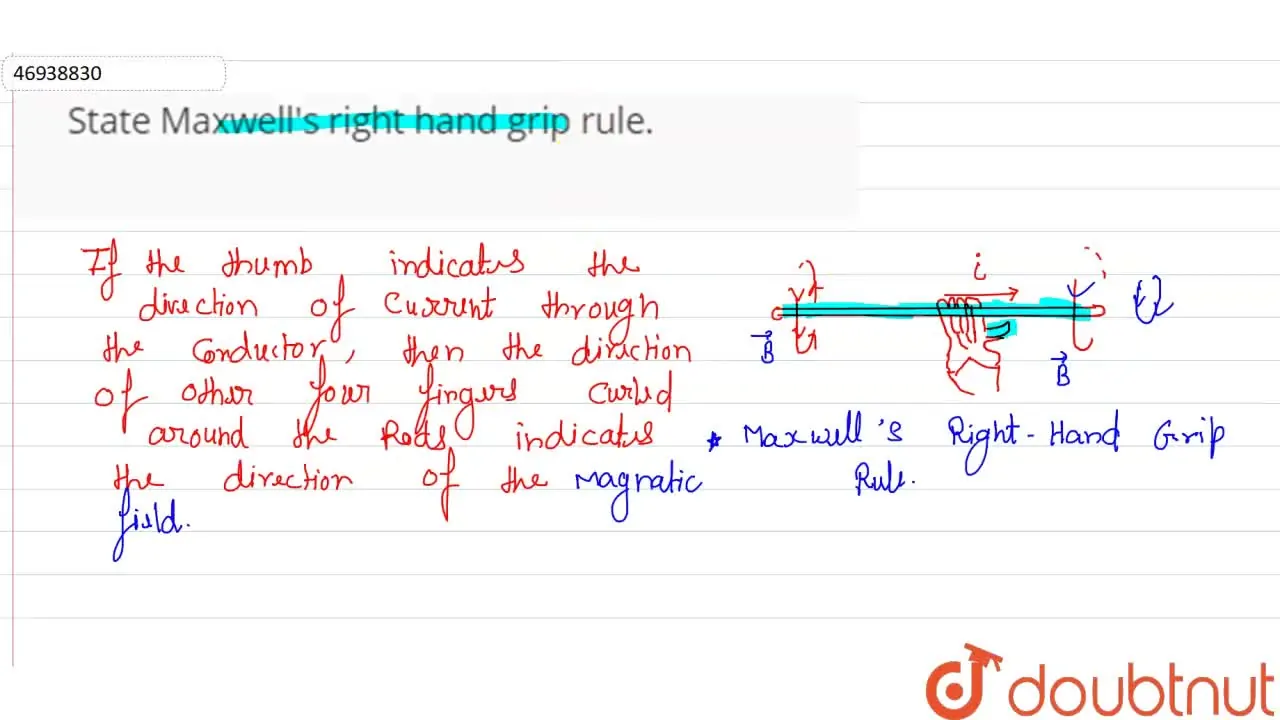 46938830
State Maxwell's right hand grip rule.
If the thumb indicates the
direction of current through
the conductor, then the direction
of other four fingers curled
around the Rods indicates
the direction of the magnatic
field.
i
B
B
* Maxwell's Right-Hand Grip
Rule.
doubtnut